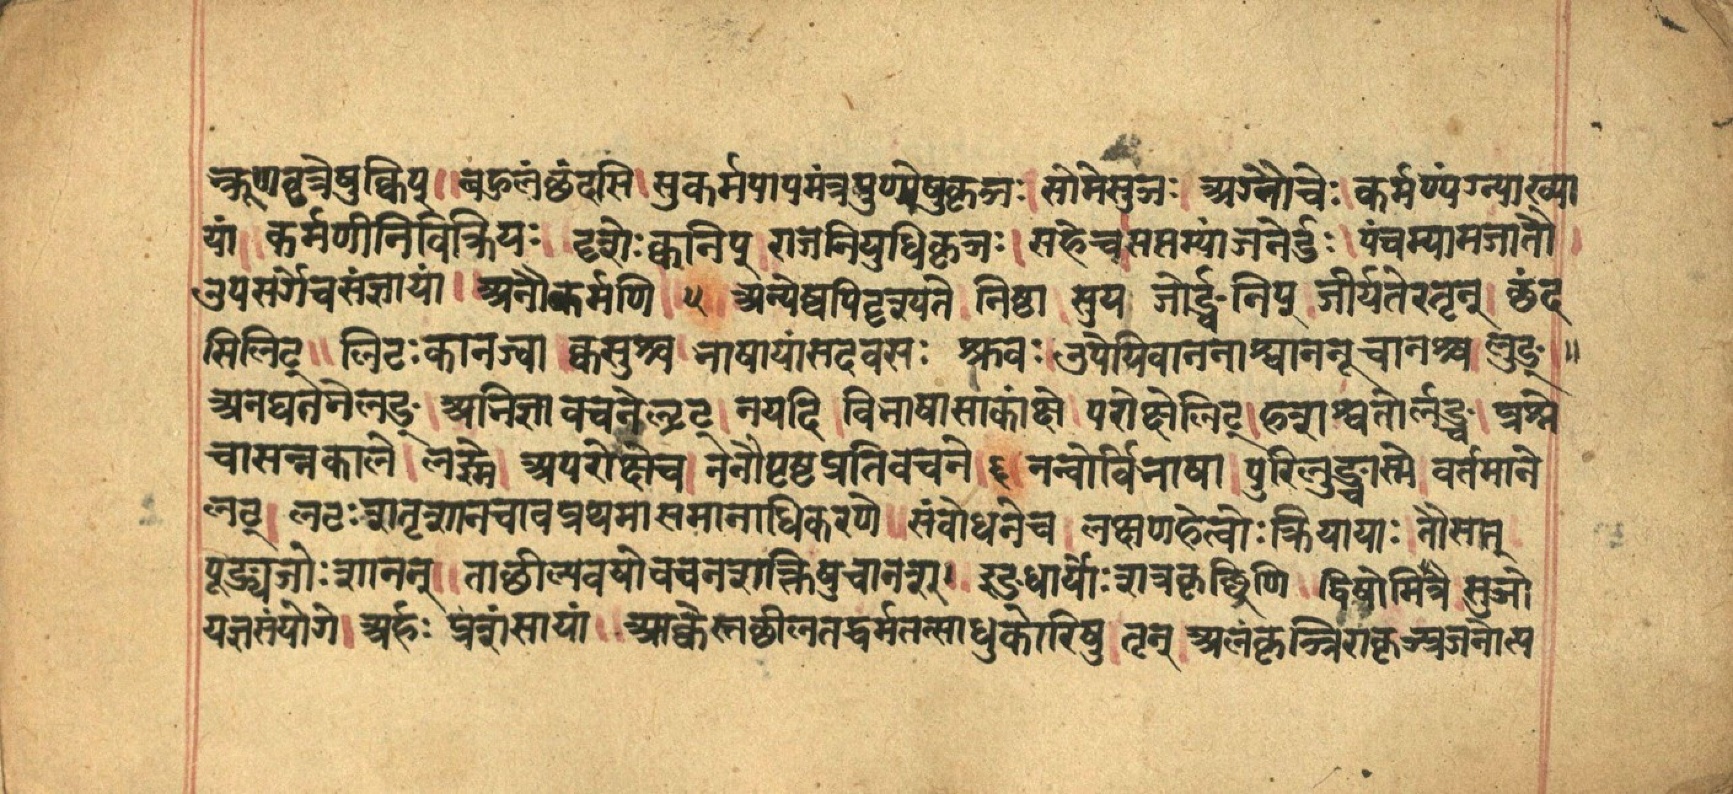 भ्रूणवृत्रेषुक्विप् । बहुलंछंदसि । सुकर्मपापमंत्रपुण्येषुकृञः । सोमेसुञः । अग्नौचेः । कर्मण्यग्न्याख्या
यां । कर्मणीनिर्विक्रियः । दृशेःक्वनिप् । राजनियुधिकृञः । सहेच । सप्तम्यांजनेर्डः । पंचम्यामजातौ ।
उपसर्गेचसंज्ञायां । अनौकर्मणि । ५ । अन्येष्वपिदृश्यते । निष्ठा । सुय जोर्ङ्वनिप् । जीर्यतेरतृन् । छंद
सिलिट् । लिटःकानज्वा । क्वसुश्च । भाषायांसदवसः श्रुवः । उपेयिवाननाश्वाननूचानश्च । लुङ् ॥
अनद्यतनेलङ् । अभिज्ञावचनेलृट् । नयदि । विभाषासाकांक्षे । परोक्षेलिट् । हशश्वतोर्लङ्च । प्रश्ने
चासन्नकाले । लट्स्मे । अपरोक्षेच । ननौपृष्टप्रतिवचने । ६ । नन्वोर्विभाषा । पुरिलुङ्चास्मे । वर्तमाने
लट् । लटःशतृशानचावप्रथमासमानाधिकरणे । संबोधनेच । लक्षणहेत्वोःक्रियायाः । तौसत् ।
पूङ्यजोःशानन् । ताछील्यवयोवचनशक्तिषुचानश् । इङधार्योःशत्रकृछ्रिणि । द्विषोमित्रे । सुञो
यज्ञसंयोगे । अर्हः प्रशंसायां । आक्वेस्तछीलतद्धर्मतत्साधुकारिषु । तृन् । अलंकृञ्निराकृञ्प्रजनोत्प